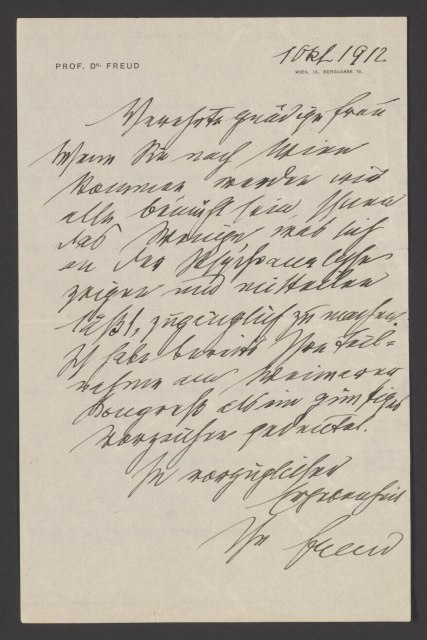 1 Okt 1912
PROF. DR. FREUD
WIEN, IX., BERGGASSE 19.
Verehrte gnädige Frau
Wenn Sie nach Wien
kommen, werden wir
alle bemüht sein, Ihnen
das Wenige, was sich
an der Psychoanalyse
zeigen und mitteilen
läßt, zugänglich zu machen.
Ich habe bereits Ihre Teil-
nahme am Weimarer
Kongreß als ein günstiges
Vorzeichen gedeutet.
In vorzüglicher
Hochachtung
Ihr Freud